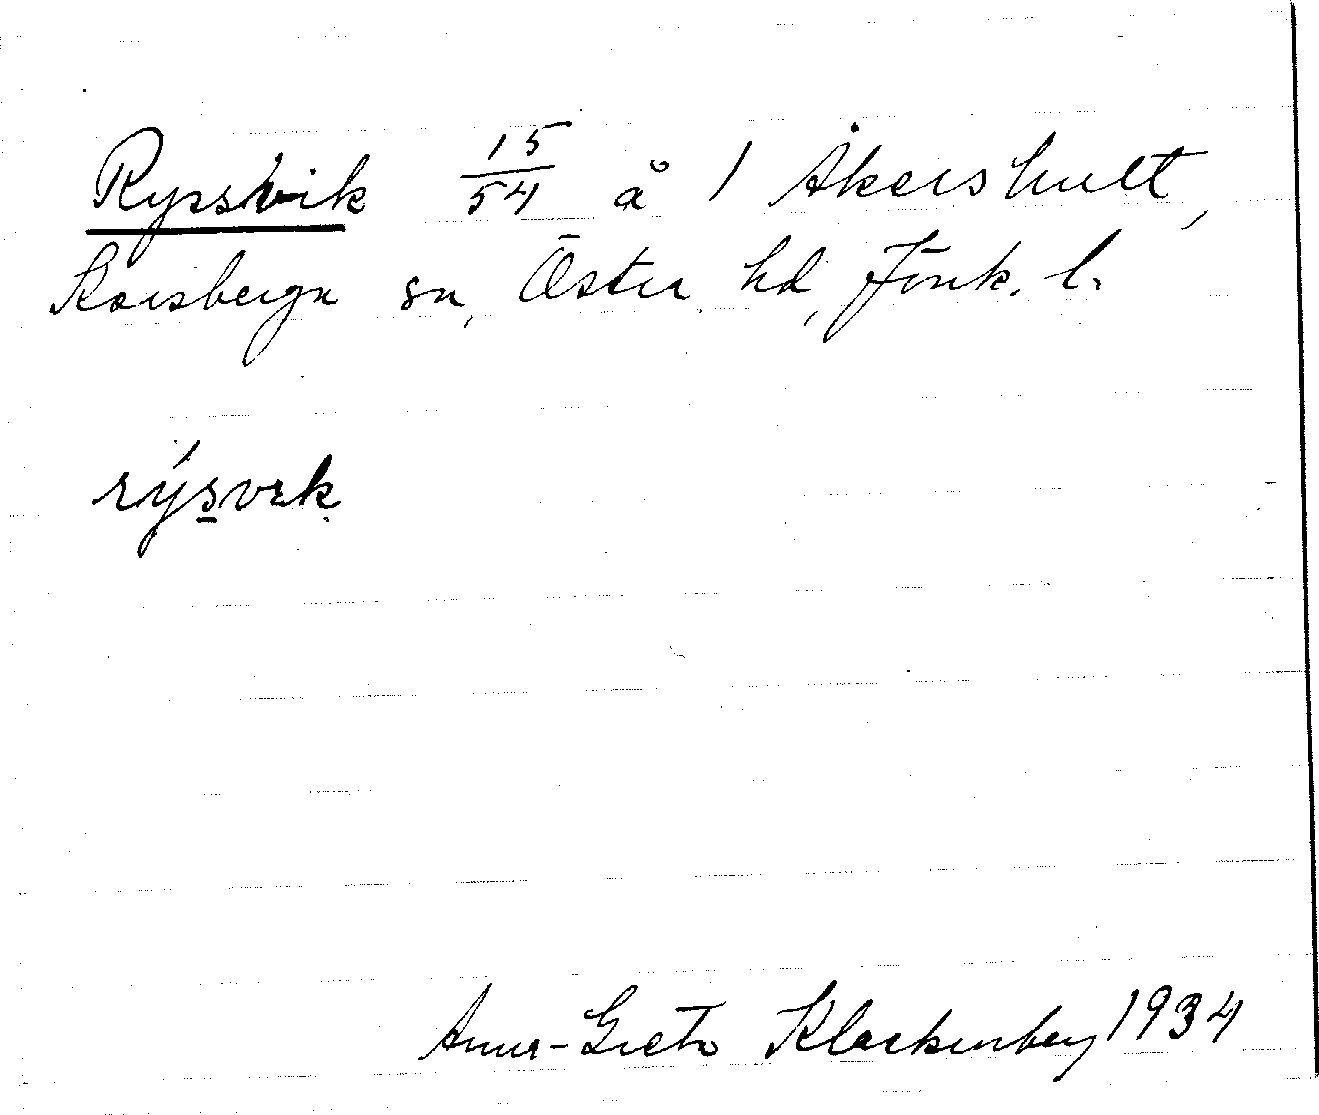 Ryrsvik 15/54 å 1 Åkershult,
Korsberga sn, Östra hd, Jönk. l.
rýsvək
Anna-Greta Klockenberg 1934